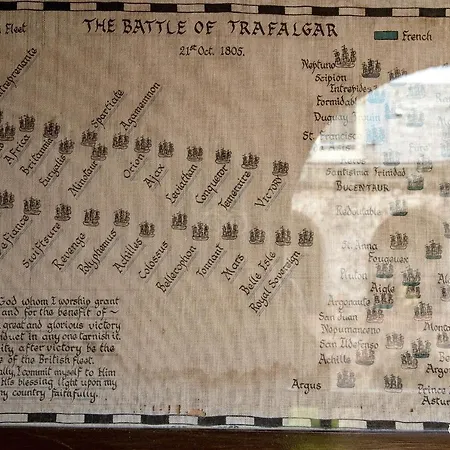 Fleet
THE BATTLE OF TRAFALGAR
21st Oct. 1805.
French
Entreprenante
Africa
Britannia
Euryalus
Minotaur
Spartiate
Agamemnon
Orion
Ajax
Leviathan
Conqueror
Temeraire
Victory
Defiance
Swiftsure
Revenge
Polyphemus
Achilles
Colossus
Bellerophon
Tonnant
Mars
Belle Isle
Royal Sovereign
Neptuno
Scipion
Intrepide
Formidable
Duguay
St. Francisco
Heros
Santisima Trinidad
BUCENTAUR
Redoutable
St Anna
Fougeuex
Pluton
Aigle
Argonauta
San Juan
Nepumanceno
San Ildefonso
Achille
Argus
Montan
Argo
Prince
Astur
God whom I worship grant
and for the benefit of ~
great and glorious victory
onduct in any one tarnish it.
ity after victory be the
e of the British fleet.
ally, I commit myself to Him
His blessing light upon my
y country faithfully.